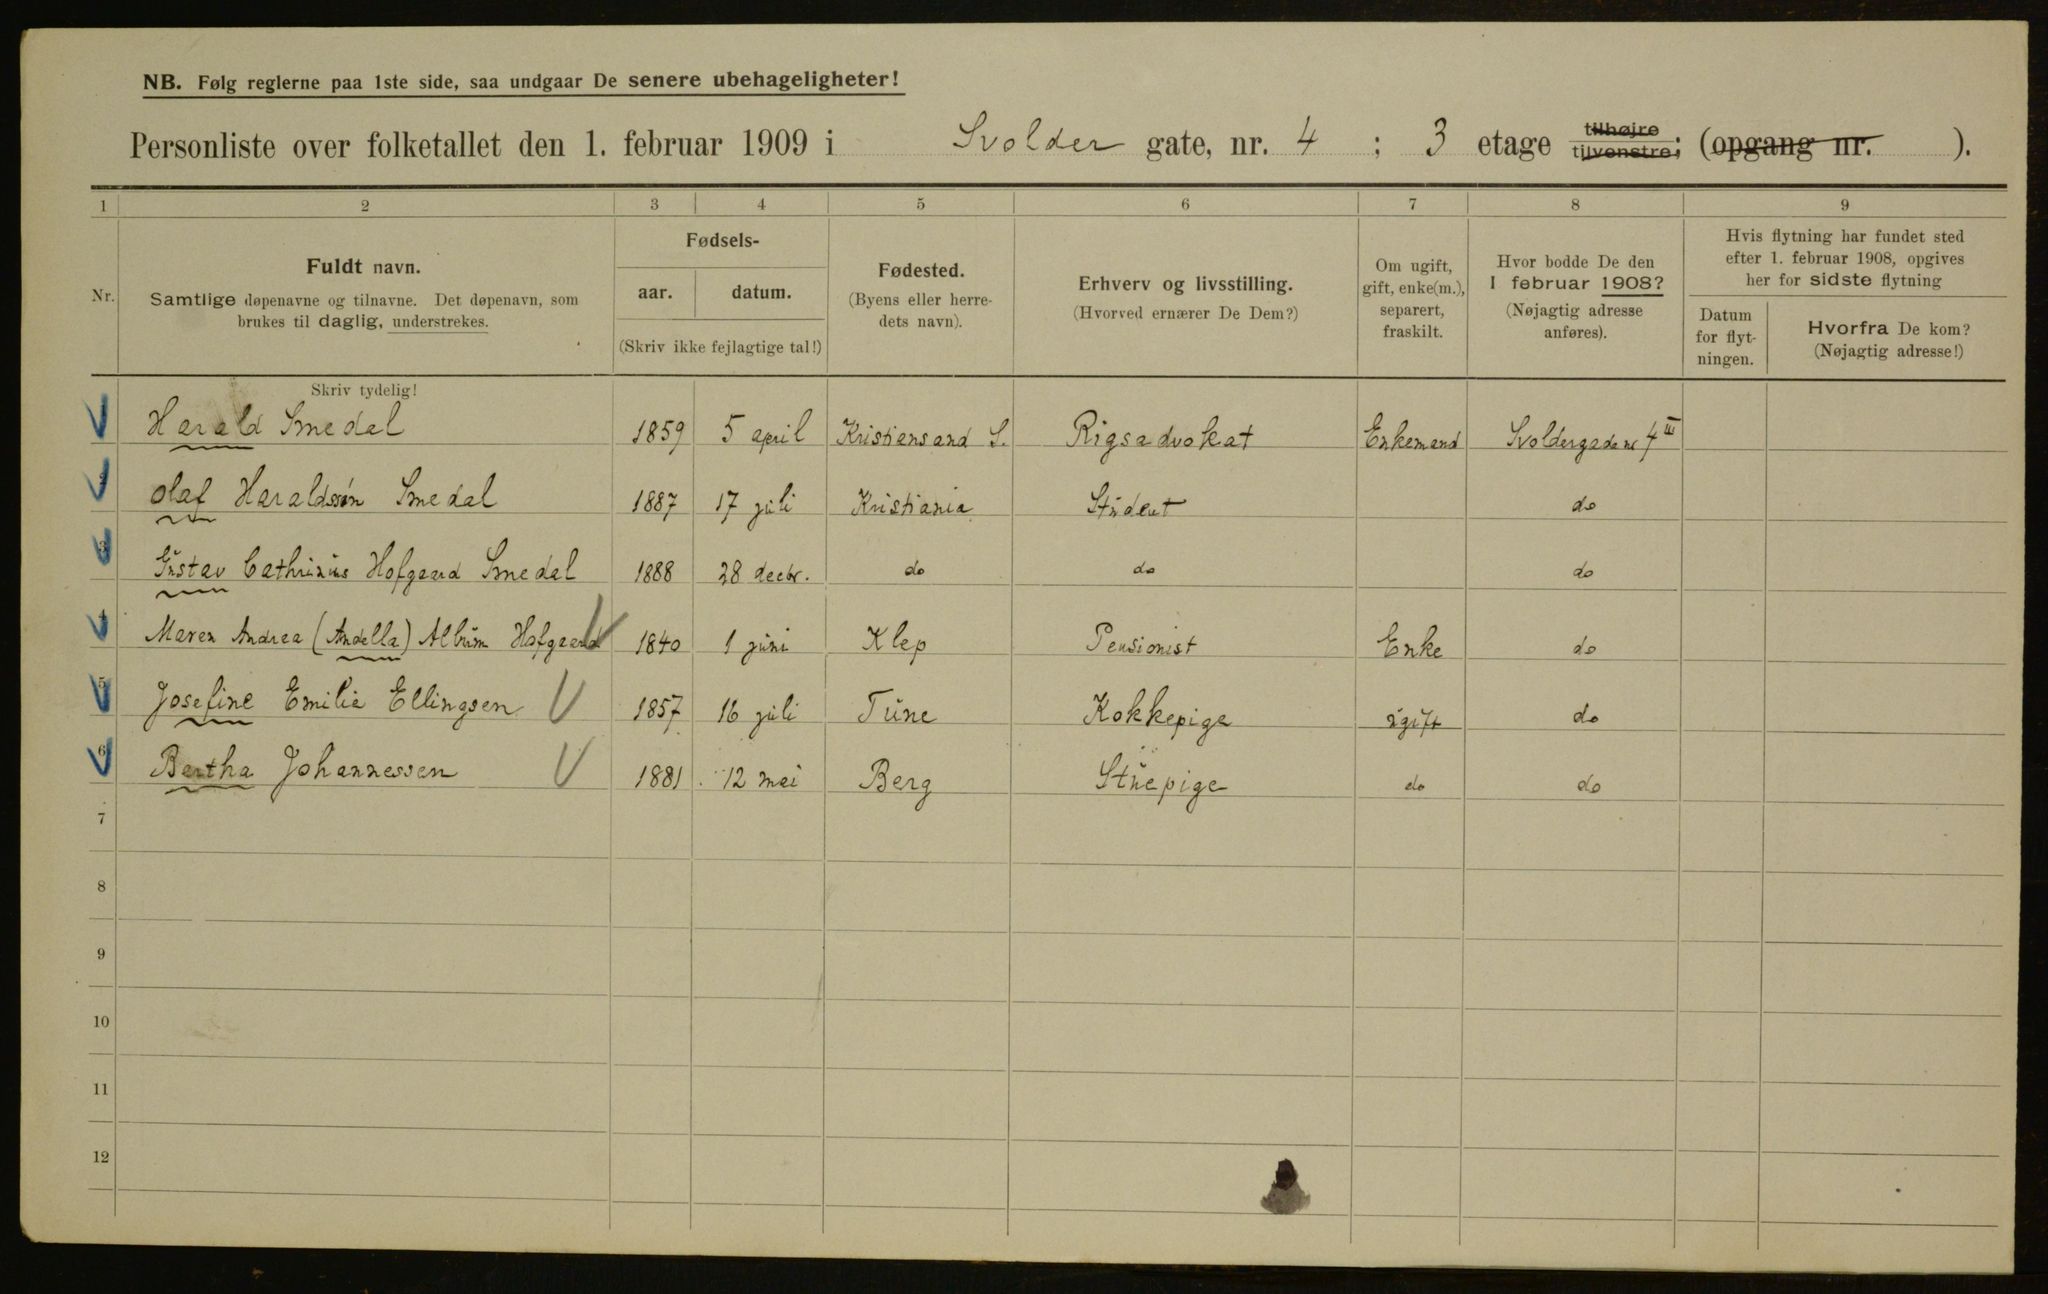 NB. Følg reglerne paa 1ste side, saa undgaar De senere ubehageligheter!
Personliste over folketallet den 1. februar 1909 i Svolder gate, nr. 4 ; 3 etage tilhøjre tilvenstre; (opgang nr. ).
1 2 3 4 5 6 7 8 9
Nr.
Fuldt navn.
Samtlige døpenavne og tilnavne. Det døpenavn, som
brukes til daglig, understrekes.
Fødsels-
aar. datum.
(Skriv ikke fejlagtige tal!)
Fødested.
(Byens eller herre-
dets navn).
Erhverv og livsstilling.
(Hvorved ernærer De Dem?)
Om ugift,
gift, enke(m.),
separert,
fraskilt.
Hvor bodde De den
1 februar 1908?
(Nøjagtig adresse
anføres).
Hvis flytning har fundet sted
efter 1. februar 1908, opgives
her for sidste flytning
Datum
for flyt-
ningen.
Hvorfra De kom?
(Nøjagtig adresse!)
Skriv tydelig!
Harald Smedal 1859 5 april Kristiansand S. Rigsadvokat Enkemand Svoldergade nr 4 III
2 Olaf Haraldssøn Smedal 1887 17 juli Kristiania Student do
3 Gustav Cathrinus Hofgaard Smedal 1888 28 decbr. do do do
4 Maren Andrea (Andella) Album Hofgaard 1840 1 juni Klep Pensionist Enke do
5 Josefine Emilie Ellingsen 1857 16 juli Tune Kokkepige ugift do
6 Bertha Johannessen 1881 12 mai Berg Stuepige do do
7
8
9
10
11
12